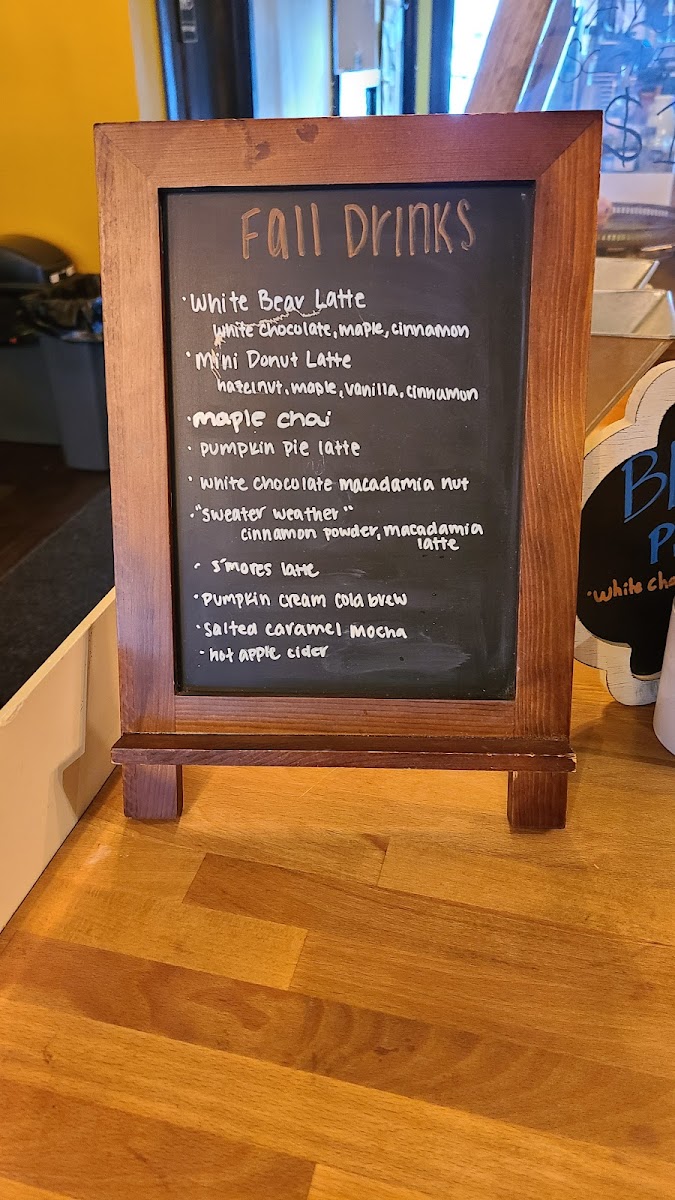 Fall Drinks
·White Bear Latte
white chocolate, maple, cinnamon
·Mini Donut Latte
hazelnut, maple, vanilla, cinnamon
·maple chai
·pumpkin pie latte
·white chocolate macadamia nut
·"sweater weather"
cinnamon powder, macadamia
latte
·s'mores latte
·pumpkin cream cold brew
·salted caramel mocha
·hot apple cider
·white
$